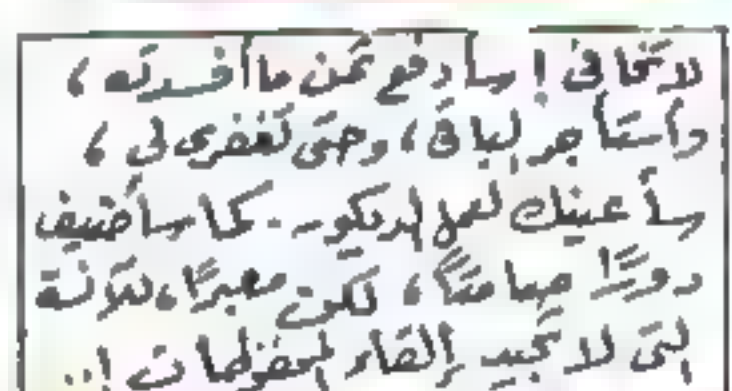 لا تخافى ! سأدفع ثمن ما أفسدته ،
وأستأجر الباقى ، وحتى تغفرى لى ،
سأعينك لعمل الديكور .. كما سأضيف
دورًا صامتًا ، لكن معبرًا ، للآنسة
التى لا تجيد إلقاء المحفوظات !..